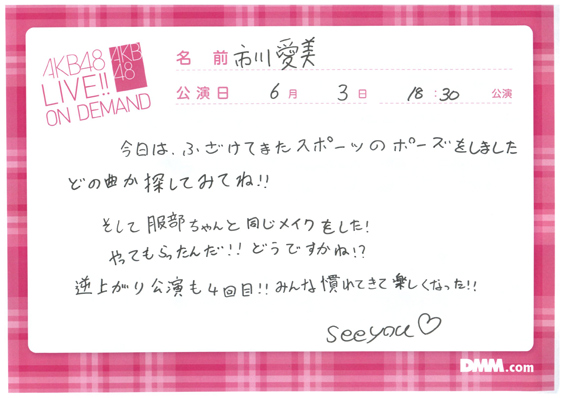 AKB48
LIVE!!
ON DEMAND
AKB
48
名 前 市川愛美
公演日 6 月 3 日 18:30 公演
今日は、ふざけてまたスポーツのポーズをしました
どの曲か探してみてね!!
そして服部ちゃんと同じメイクをした!
やってもらったんだ!!どうですかね!?
逆上がり公演も4回目!!みんな慣れてきて楽しくなった!!
see you♡
DMM.com